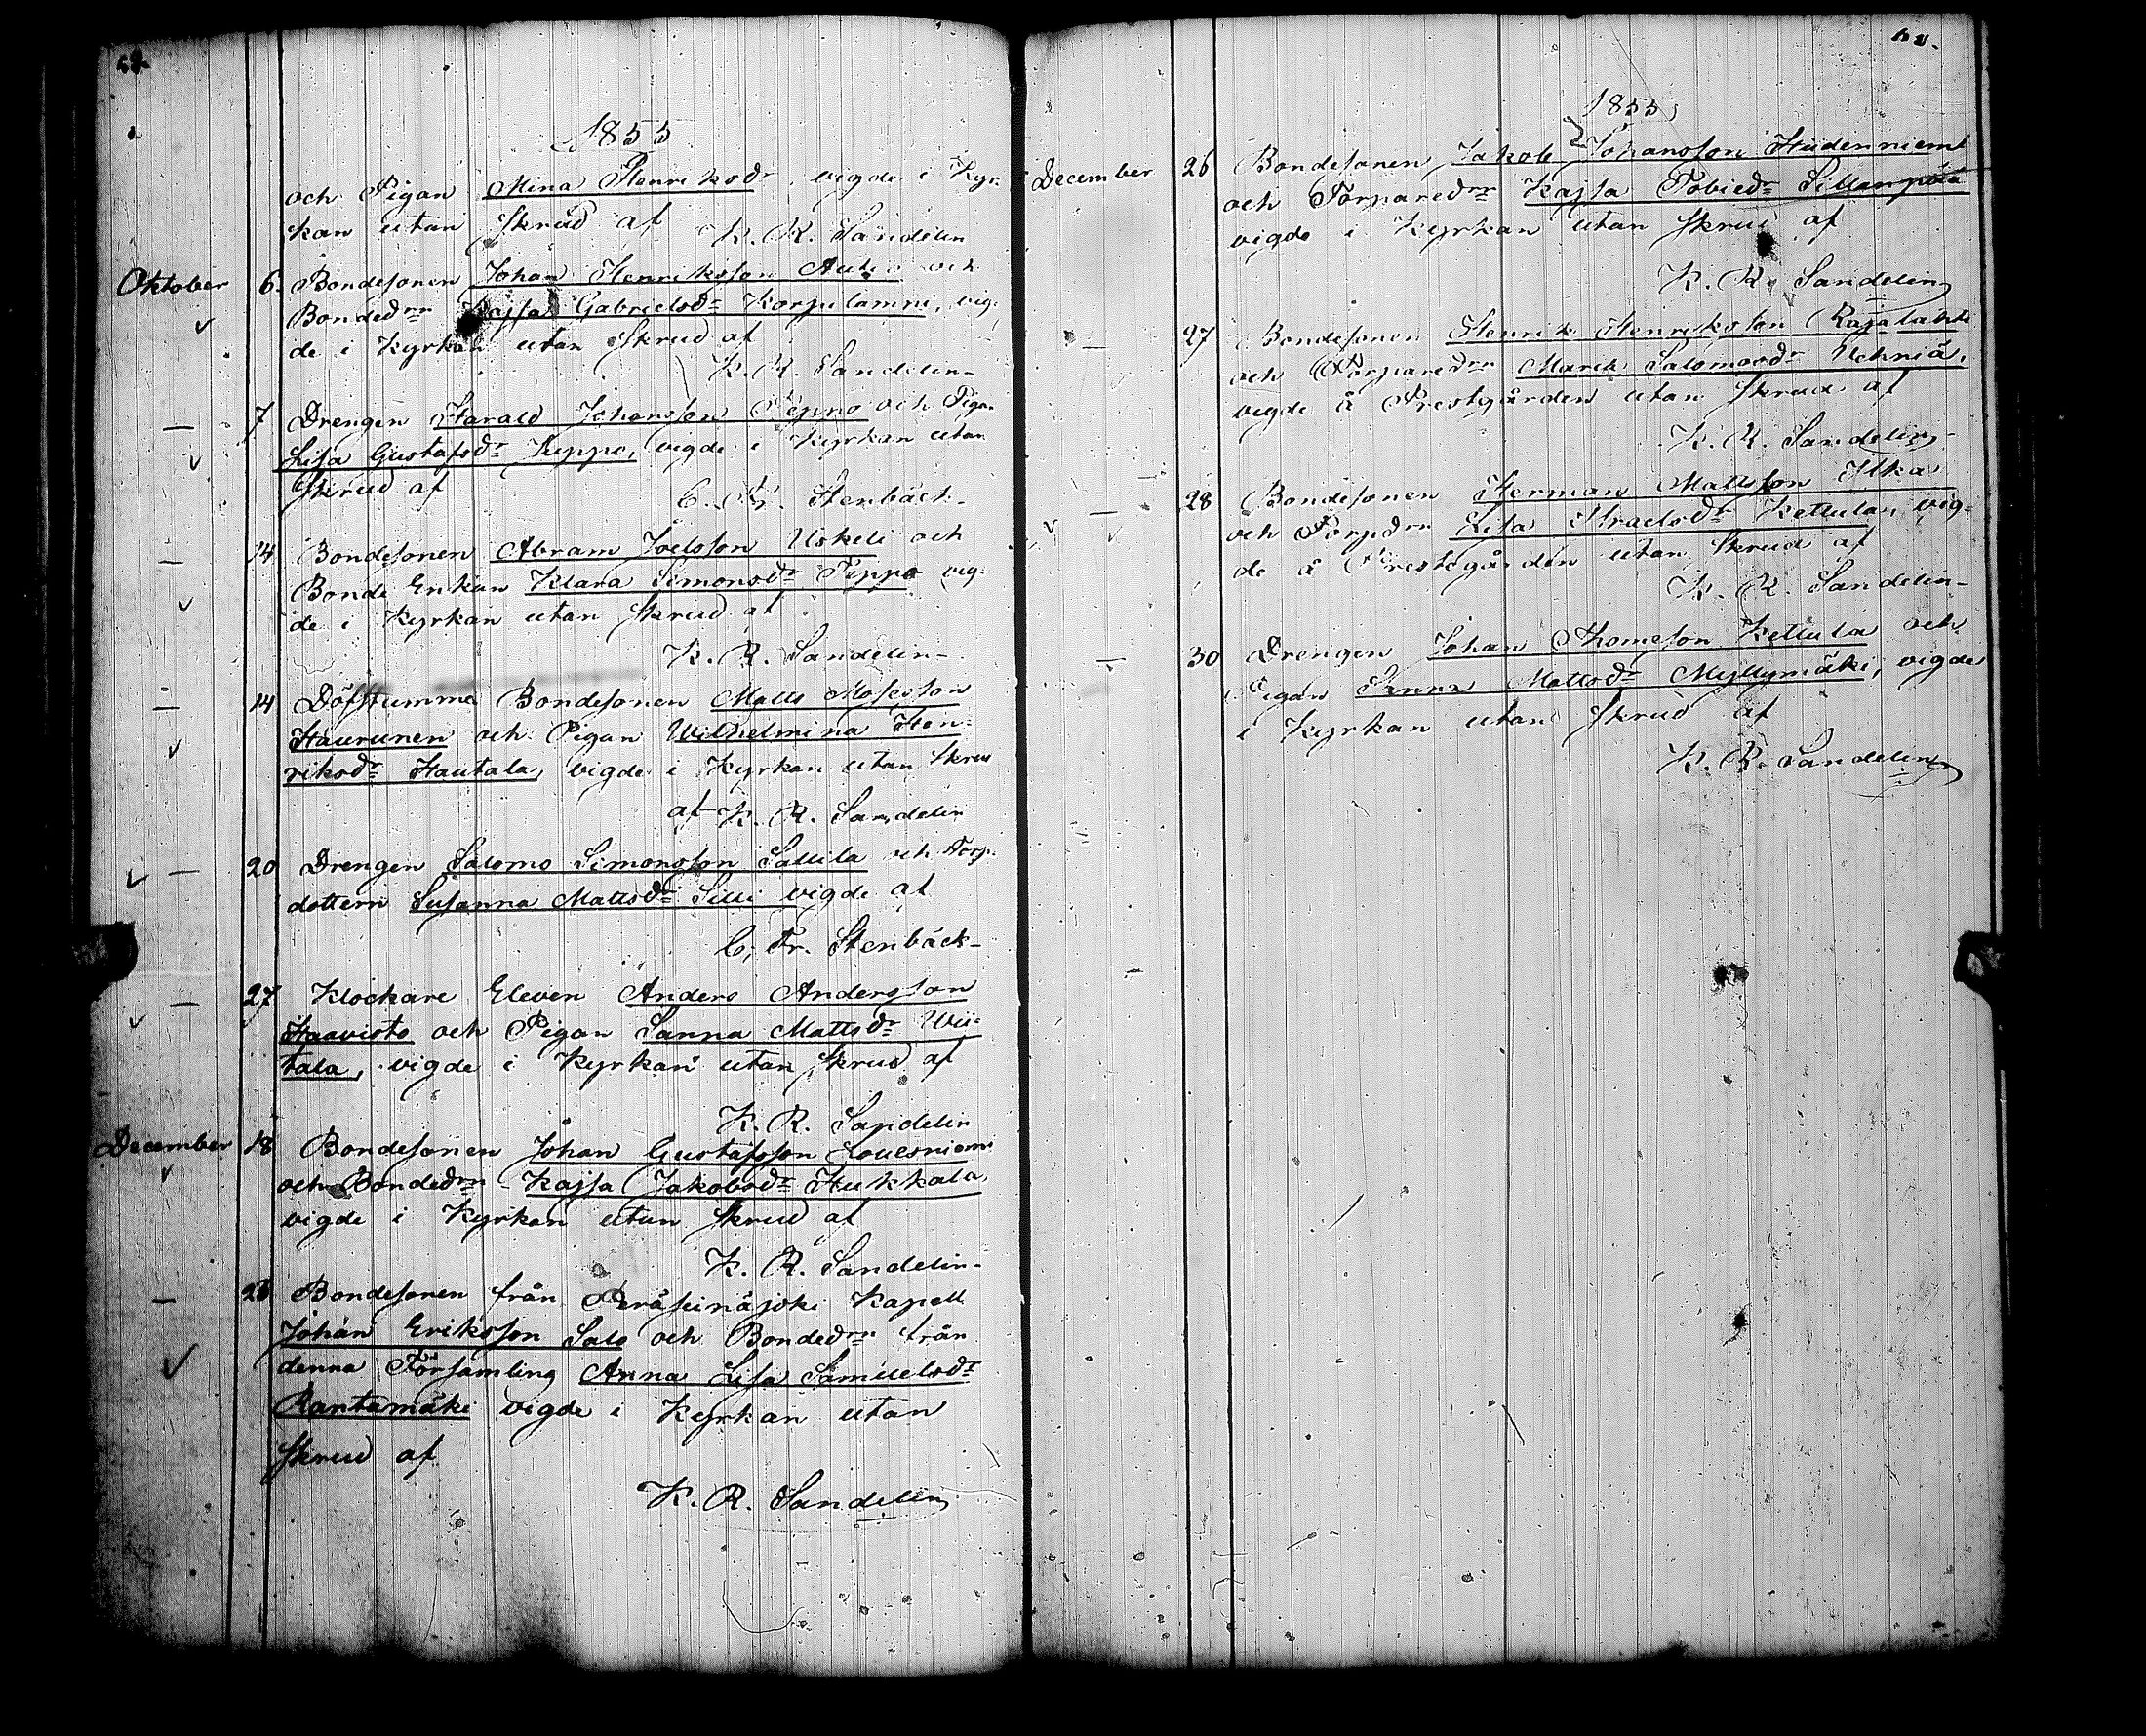 1855
och Pigan Mina Henriksdr vigde i Kyr-
kan utan Skrud af K. R. Sandelin
Oktober 6. Bondesonen Johan Henriksson Autio och
Bondedrn Kajsa Gabrielsdr Korpilammi, vig-
de i Kyrkan utan Skrud af
K. R. Sandelin
7 Drengen Harald Johansson Peppo och Pigan
Lisa Gustafsdr Keppo, vigde i Kyrkan utan
Skrud af
C. Fr. Stenbäck
14 Bondesonen Abram Joelsson Uskeli och
Bonde Enkan Klara Simonsdr Peppo vig-
de i Kyrkan utan Skrud af
K. R. Sandelin
14 Döfstumma Bondesonen Matts Mosesson
Haurunen och Pigan Wilhelmina Hen-
riksdr Hautala, vigde i Kyrkan utan Skrud
af K. R. Sandelin
20 Drengen Salomo Simonsson Sallila och Torp-
dottern Susanna Mattsdr Silli vigde af
C. Fr. Stenbäck
27 Klockare Eleven Anders Andersson
Haavisto och Pigan Sanna Mattsdr Wii-
tala, vigde i Kyrkan utan Skrud af
K. R. Sandelin
December 18 Bondesonen Johan Gustafsson Louesniemi
och Bondedrn Kajsa Jakobsdr Hukkala,
vigde i Kyrkan utan Skrud af
K. R. Sandelin
26 Bondesonen från Peräseinäjoki Kapell
Johan Eriksson Salo och Bondedrn från
denna Församling Anna Lisa Samuelsdr
Rantamäki vigde i Kyrkan utan
Skrud af
K. R. Sandelin
1855
December 26 Bondesonen Jakob Johansson Hiidenniemi
och Torparedrn Kajsa Tobiedr Sillanpää
vigde i Kyrkan utan Skrud af
K. R. Sandelin
27 Bondesonen Henrik Henriksson Rajalahti
och Torparedrn Maria Salomosdr Wehniä,
vigde å Prestgården utan Skrud af
K. R. Sandelin
28 Bondesonen Herman Mattsson Ilka
och Torpdrn Lisa Israelsdr Kettula, vig-
de å Prestegården utan Skrud af
K. R. Sandelin
30 Drengen Johan Thomasson Kettula och
Pigan Mattsdr Myllymäki, vigde
i Kyrkan utan Skrud af
K. R. Sandelin